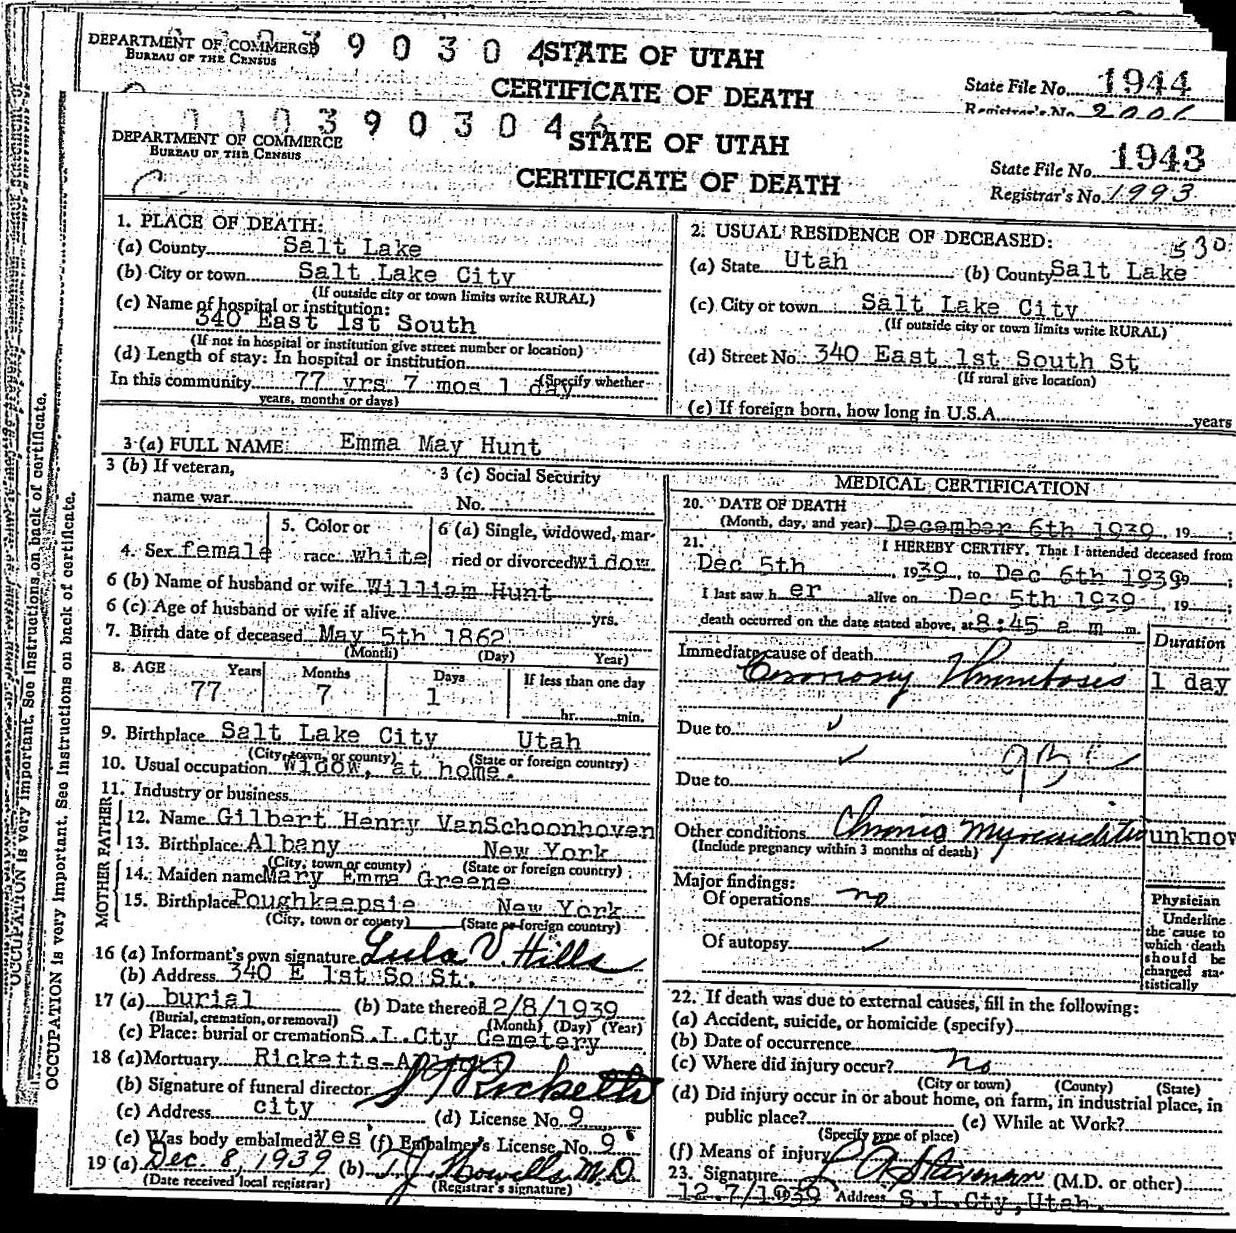 DEPARTMENT OF COMMERCE
BUREAU OF THE CENSUS
3 9 0 3 0 4
STATE OF UTAH
CERTIFICATE OF DEATH
State File No. 1944
Registrar's No. 2006
DEPARTMENT OF COMMERCE
BUREAU OF THE CENSUS
3 9 0 3 0 4 6
STATE OF UTAH
CERTIFICATE OF DEATH
State File No. 1943
Registrar's No. 1993
OCCUPATION is very important. See instructions on back of certificate.
OCCUPATION is very important. See instructions on back of certificate.
1. PLACE OF DEATH:
(a) County Salt Lake
(b) City or town Salt Lake City
(If outside city or town limits write RURAL)
(c) Name of hospital or institution:
340 East 1st South
(If not in hospital or institution give street number or location)
(d) Length of stay: In hospital or institution
In this community 77 yrs 7 mos 1 day (Specify whether
years, months or days)
2. USUAL RESIDENCE OF DECEASED: 530
(a) State Utah (b) County Salt Lake
(c) City or town Salt Lake City
(If outside city or town limits write RURAL)
(d) Street No. 340 East 1st South St
(If rural give location)
(e) If foreign born, how long in U.S.A. years
3 (a) FULL NAME Emma May Hunt
3 (b) If veteran,
name war
3 (c) Social Security
No.
4. Sex female
5. Color or
race white
6 (a) Single, widowed, mar-
ried or divorced widow
6 (b) Name of husband or wife William Hunt
6 (c) Age of husband or wife if alive yrs.
7. Birth date of deceased May 5th 1862
(Month) (Day) Year)
8. AGE Years Months Days If less than one day
77 7 1 hr. min.
9. Birthplace Salt Lake City Utah
(City, town or county) (State or foreign country)
10. Usual occupation Widow, at home.
11. Industry or business
FATHER
12. Name Gilbert Henry VanSchoonhoven
13. Birthplace Albany New York
(City, town or county) (State or foreign country)
MOTHER
14. Maiden name Mary Emma Greene
15. Birthplace Poughkeepsie New York
(City, town or county) (State or foreign country)
16 (a) Informant's own signature Lula V. Hills
(b) Address 340 E 1st So St.
17 (a) burial (b) Date thereof 12/8/1939
(Burial, cremation, or removal) (Month) (Day) (Year)
(c) Place: burial or cremation S.L.Cty Cemetery
18 (a) Mortuary Ricketts-
(b) Signature of funeral director Ricketts
(c) Address city (d) License No. 9
(e) Was body embalmed? yes (f) Embalmer's License No. 9
19 (a) Dec. 8, 1939 (b) T.J. Howells M.D.
(Date received local registrar) (Registrar's signature)
MEDICAL CERTIFICATION
20. DATE OF DEATH
(Month, day, and year) December 6th 1939, 19 ;
21. I HEREBY CERTIFY, That I attended deceased from
Dec 5th, 1939, to Dec 6th 1939 ;
I last saw her alive on Dec 5th 1939, 19 ;
death occurred on the date stated above, at 8:45 a m m.
Duration
Immediate cause of death
Coronary Thrombosis 1 day
Due to
Due to
Other conditions Chronic Myocarditis unknow
(Include pregnancy within 3 months of death)
Major findings:
Of operations no
Of autopsy
Physician
Underline
the cause to
which death
should be
charged sta-
tistically
22. If death was due to external causes, fill in the following:
(a) Accident, suicide, or homicide (specify)
(b) Date of occurrence
(c) Where did injury occur? no
(City or town) (County) (State)
(d) Did injury occur in or about home, on farm, in industrial place, in
public place? (e) While at Work?
(Specify type of place)
(f) Means of injury
23. Signature (M.D. or other)
12/7/1939 Address S.L.Cty, Utah.